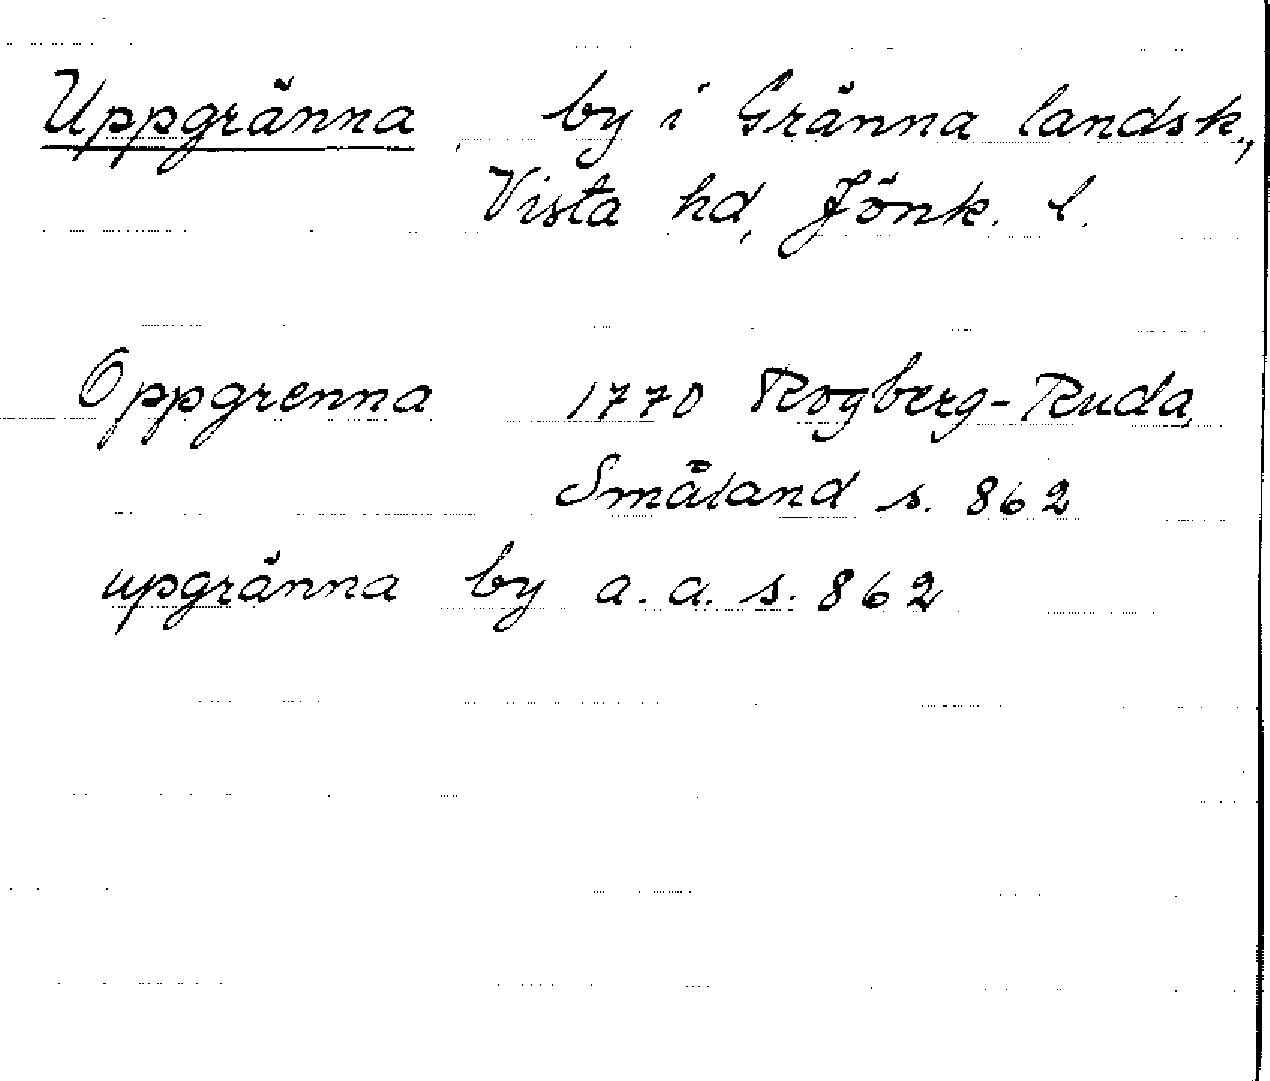 Uppgränna by i Gränna landsk.,
Vista hd, Jönk. l.
Oppgrenna 1770 Rogberg-Ruda,
Småland s. 862
upgränna by a. a. s. 862